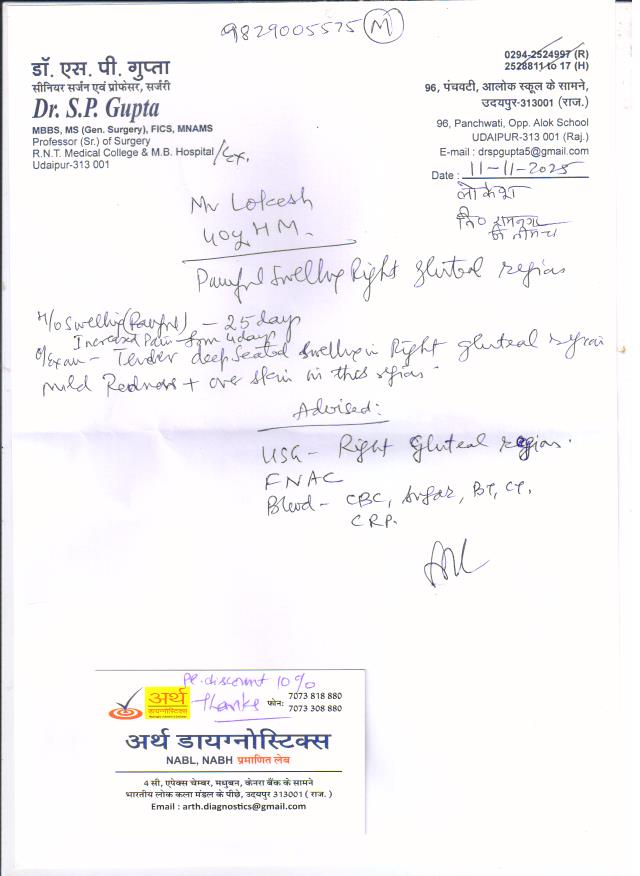 9829005575 (M)
डॉ. एस. पी. गुप्ता
सीनियर सर्जन एवं प्रोफेसर, सर्जरी
Dr. S.P. Gupta
MBBS, MS (Gen. Surgery), FICS, MNAMS
Professor (Sr.) of Surgery
R.N.T. Medical College & M.B. Hospital /Ex.
Udaipur-313 001
0294-2524997 (R)
2528811 to 17 (H)
96, पंचवटी, आलोक स्कूल के सामने,
उदयपुर-313001 (राज.)
96, Panchwati, Opp. Alok School
UDAIPUR-313 001 (Raj.)
E-mail : drspgupta5@gmail.com
Date : 11-11-2025
लोकेश
नि० रामनगर
नीमच
Mr Lokesh
40y HM.
Painful Swelling Right gluteal region
H/o Swelling (Painful) - 25 days
Increased Pain from 4 days
O/Exam - Tender deep Seated Swelling in Right gluteal region
mild Redness + over skin in this region.
Advised:
USG - Right Gluteal region.
FNAC
Blood - CBC, Sugar, BT, CT,
CRP.
Pl. discount 10%
Thanks
अर्थ
डायग्नोस्टिक्स
फोन: 7073 818 880
7073 308 880
अर्थ डायग्नोस्टिक्स
NABL, NABH प्रमाणित लेब
4 सी, एपेक्स चेम्बर, मधुबन, केनरा बैंक के सामने
भारतीय लोक कला मंडल के पीछे, उदयपुर 313001 ( राज. )
Email : arth.diagnostics@gmail.com